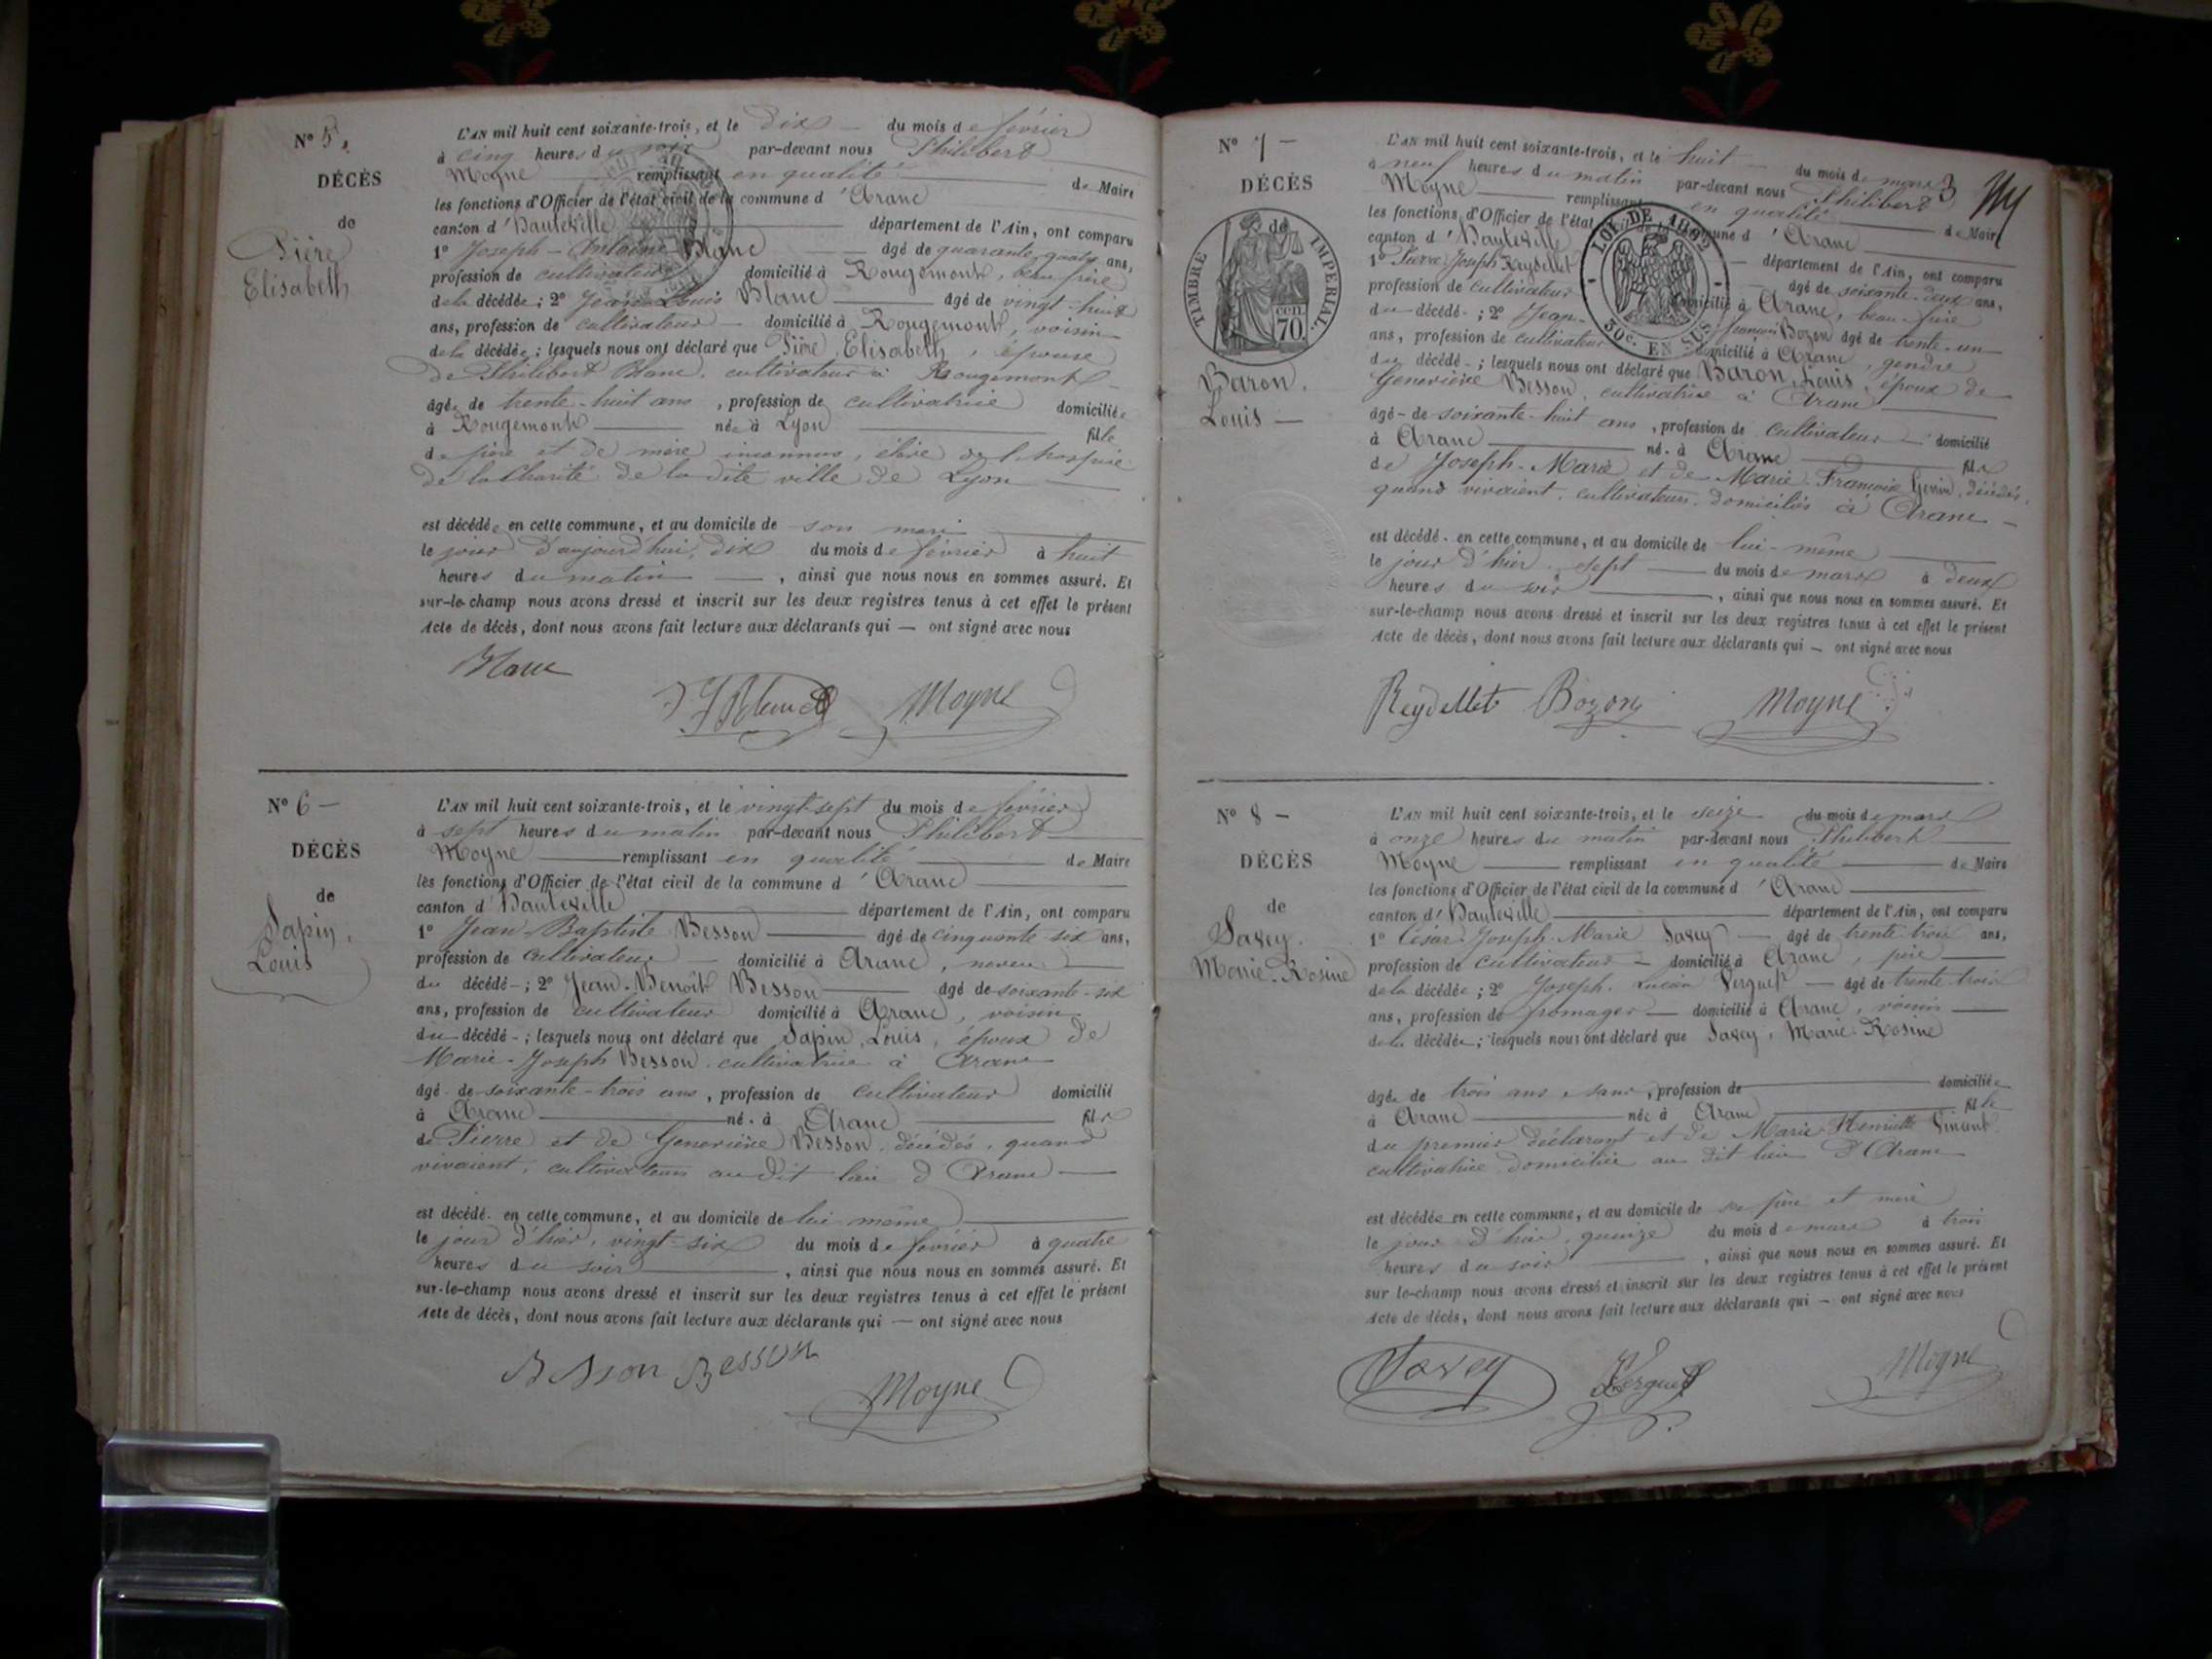 N° 5.
DÉCÈS
de
Pière
Elisabeth
L'AN mil huit cent soixante-trois, et le dix du mois de février
à cinq heures du soir par-devant nous Philibert
Moyne remplissant en qualité de Maire
les fonctions d'Officier de l'état civil de la commune d'Aranc
canton d'Hauteville département de l'Ain, ont comparu
1° Joseph-Antoine Blanc âgé de quarante-quatre ans,
profession de cultivateur domicilié à Rougemont, beau-frère
de la décédée; 2° Jean-Louis Blanc âgé de vingt-huit
ans, profession de cultivateur domicilié à Rougemont, voisin
de la décédée; lesquels nous ont déclaré que Pière, Elisabeth, épouse
de Philibert Blanc, cultivateur à Rougemont
âgée de trente-huit ans, profession de cultivatrice domiciliée
à Rougemont née à Lyon fille
de père et de mère inconnus, élève de l'hospice
de la Charité de la dite ville de Lyon
est décédée en cette commune, et au domicile de son mari
le jour d'aujourd'hui, dix du mois de février à huit
heures du matin, ainsi que nous nous en sommes assuré. Et
sur-le-champ nous avons dressé et inscrit sur les deux registres tenus à cet effet le présent
Acte de décès, dont nous avons fait lecture aux déclarants qui — ont signé avec nous
Blanc Moyne
N° 6 —
DÉCÈS
de
Sapin,
Louis
L'AN mil huit cent soixante-trois, et le vingt-sept du mois de février
à sept heures du matin par-devant nous Philibert
Moyne remplissant en qualité de Maire
les fonctions d'Officier de l'état civil de la commune d'Aranc
canton d'Hauteville département de l'Ain, ont comparu
1° Jean-Baptiste Besson âgé de cinquante-six ans,
profession de cultivateur domicilié à Aranc, neveu
du décédé; 2° Jean-Benoît Besson âgé de soixante-six
ans, profession de cultivateur domicilié à Aranc, voisin
du décédé; lesquels nous ont déclaré que Sapin, Louis, époux de
Marie-Joseph Besson, cultivatrice à Aranc
âgé de soixante-trois ans, profession de cultivateur domicilié
à Aranc né à Aranc fils
de Pierre et de Geneviève Besson, décédés, quand
vivaient, cultivateurs au dit lieu d'Aranc
est décédé en cette commune, et au domicile de lui-même
le jour d'hier, vingt-six du mois de février à quatre
heures du soir, ainsi que nous nous en sommes assuré. Et
sur-le-champ nous avons dressé et inscrit sur les deux registres tenus à cet effet le présent
Acte de décès, dont nous avons fait lecture aux déclarants qui — ont signé avec nous
Besson Besson
Moyne
N° 7 —
DÉCÈS
de
TIMBRE IMPÉRIAL.
cen.
70.
Baron,
Louis —
3
LOI DE 1862
30c. EN SUS
L'AN mil huit cent soixante-trois, et le huit du mois de mars
à neuf heures du matin par-devant nous Philibert
Moyne remplissant en qualité de Maire
les fonctions d'Officier de l'état commune d'Aranc
canton d'Hauteville département de l'Ain, ont comparu
1° Pierre-Joseph Reydellet âgé de soixante-deux ans,
profession de cultivateur domicilié à Aranc, beau-frère
du décédé; 2° Jean-François Bozon âgé de trente-un
ans, profession de cultivateur domicilié à Aranc, gendre
du décédé; lesquels nous ont déclaré que Baron, Louis, époux de
Geneviève Besson, cultivatrice à Aranc
âgé de soixante-huit ans, profession de cultivateur domicilié
à Aranc né à Aranc fils
de Joseph-Marie et de Marie-Françoise décédés,
quand vivaient, cultivateurs domiciliés à Aranc
est décédé en cette commune, et au domicile de lui-même
le jour d'hier, sept du mois de mars à deux
heures du soir, ainsi que nous nous en sommes assuré. Et
sur-le-champ nous avons dressé et inscrit sur les deux registres tenus à cet effet le présent
Acte de décès, dont nous avons fait lecture aux déclarants qui — ont signé avec nous
Reydellet Bozon Moyne
N° 8 —
DÉCÈS
de
Savey,
Marie-Rosine
L'AN mil huit cent soixante-trois, et le seize du mois de mars
à onze heures du matin par-devant nous Philibert
Moyne remplissant en qualité de Maire
les fonctions d'Officier de l'état civil de la commune d'Aranc
canton d'Hauteville département de l'Ain, ont comparu
1° César-Joseph-Marie Savey âgé de trente-trois ans,
profession de cultivateur domicilié à Aranc, père
de la décédée; 2° Joseph-Lucien Verguet âgé de trente-trois
ans, profession de fromager domicilié à Aranc, voisin
de la décédée; lesquels nous ont déclaré que Savey, Marie-Rosine
âgée de trois ans, sans profession de domiciliée
à Aranc née à Aranc fille
du premier déclarant et de Marie-Henriette Vincent
cultivatrice domiciliée au dit lieu d'Aranc
est décédée en cette commune, et au domicile de ses père et mère
le jour d'hier, quinze du mois de mars à trois
heures du soir, ainsi que nous nous en sommes assuré. Et
sur-le-champ nous avons dressé et inscrit sur les deux registres tenus à cet effet le présent
Acte de décès, dont nous avons fait lecture aux déclarants qui — ont signé avec nous
Savey Verguet Moyne